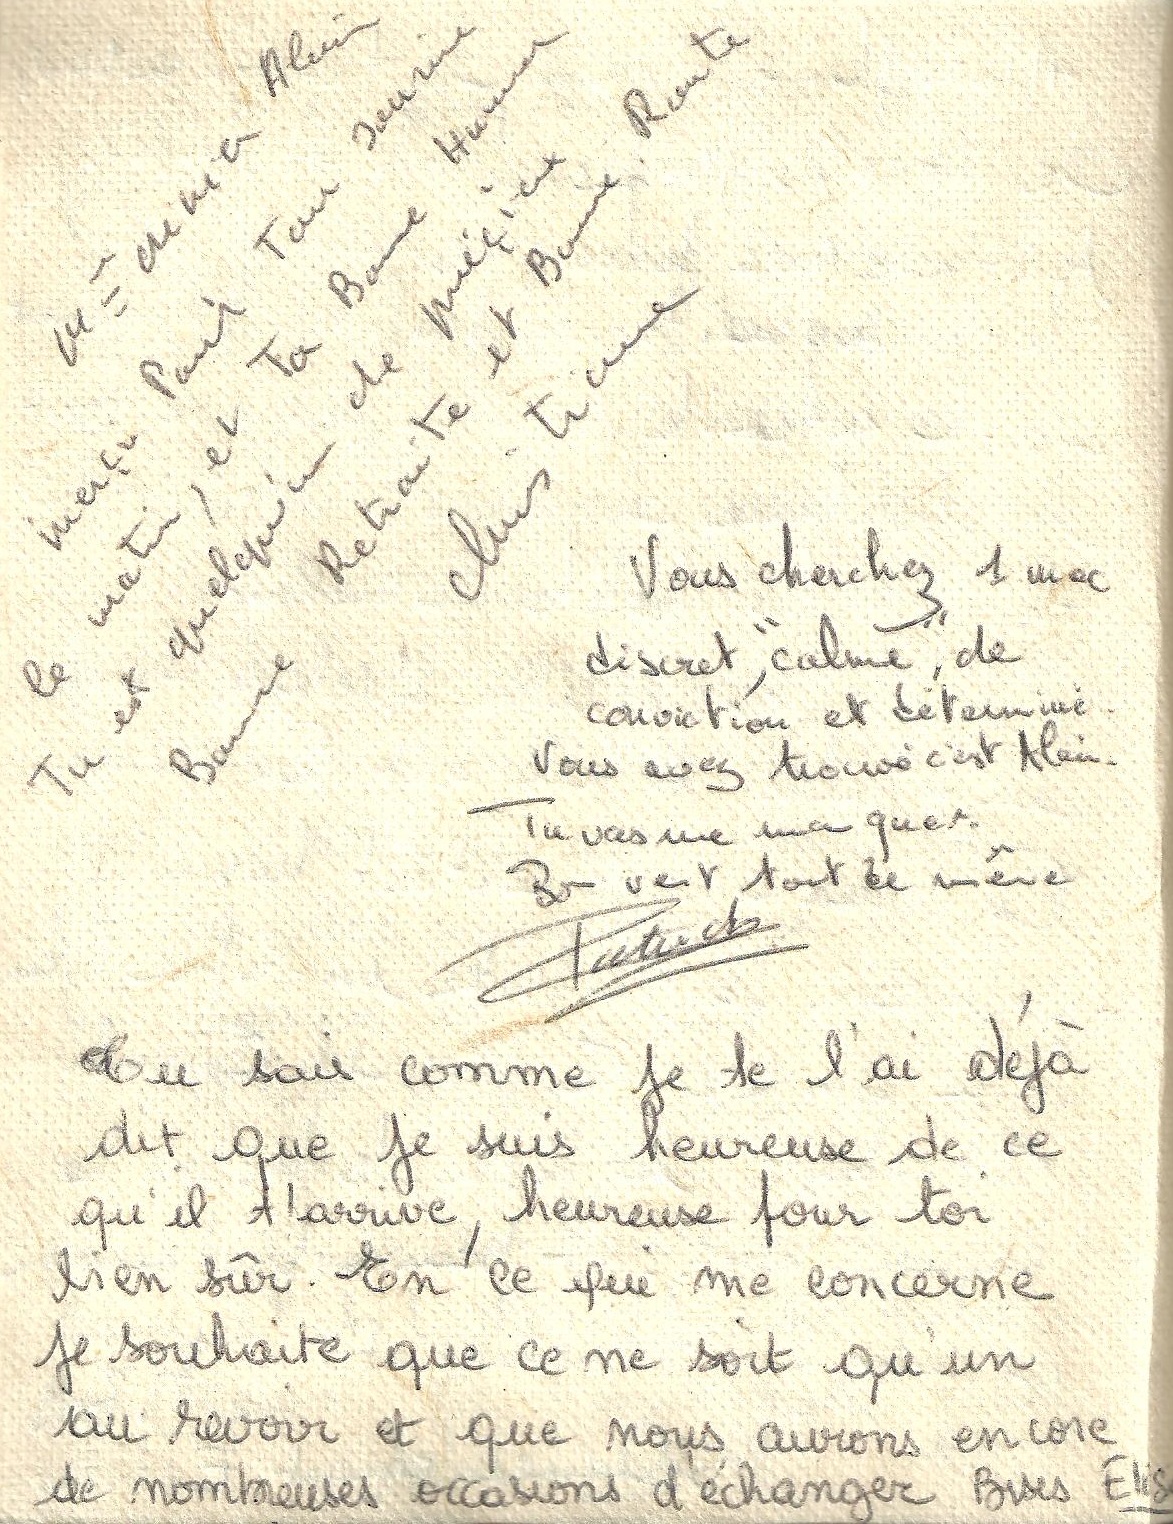 Alain
merçi Pour Ton sourire
le matin, et Ta Bonne Humeur
Tu es quelqu'un de précieux
Bonne Retraite et Bonne Route
Christiane
Vous cherchez 1 mec
discret, "calme", de
conviction et déterminé.
Vous avez trouvé c'est Alain.
Tu vas me manquer.
Bon vent tout de même
Tu sais comme je te l'ai déjà
dit que je suis heureuse de ce
qu'il t'arrive, heureuse pour toi
bien sûr. En ce qui me concerne
je souhaite que ce ne soit qu'un
au revoir et que nous aurons encore
de nombreuses occasions d'échanger Bises